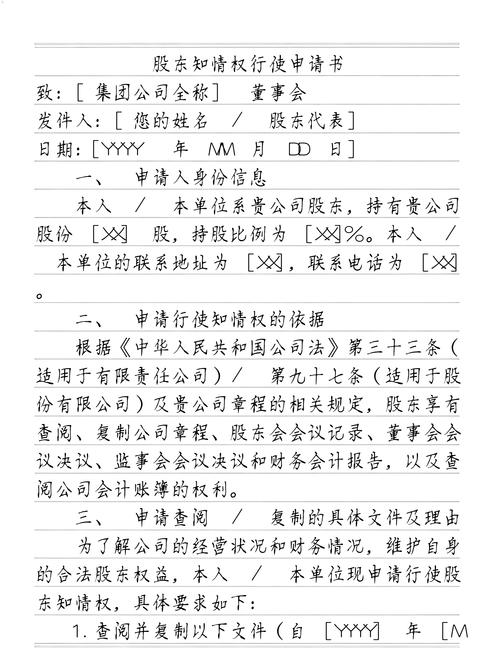 股东知情权行使申请书
致：[ 集团公司全称] 董事会
发件人：[ 您的姓名 / 股东代表]
日期：[YYYY 年 MM 月 DD 日]
一、 申请人身份信息
本人 / 本单位系贵公司股东，持有贵公司
股份 [XX] 股，持股比例为 [XX]%。本人 /
本单位的联系地址为 [XX]，联系电话为 [XX]
。
二、 申请行使知情权的依据
根据《中华人民共和国公司法》第三十三条（
适用于有限责任公司）/ 第九十七条（适用于股
份有限公司）及贵公司章程的相关规定，股东享有
查阅、复制公司章程、股东会会议记录、董事会会
议决议、监事会会议决议和财务会计报告，以及查
阅公司会计账簿的权利。
三、 申请查阅 / 复制的具体文件及理由
为了解公司的经营状况和财务情况，维护自身
的合法股东权益，本人 / 本单位现申请行使股
东知情权，具体要求如下：
1. 查阅并复制以下文件（自 [YYYY] 年 [M